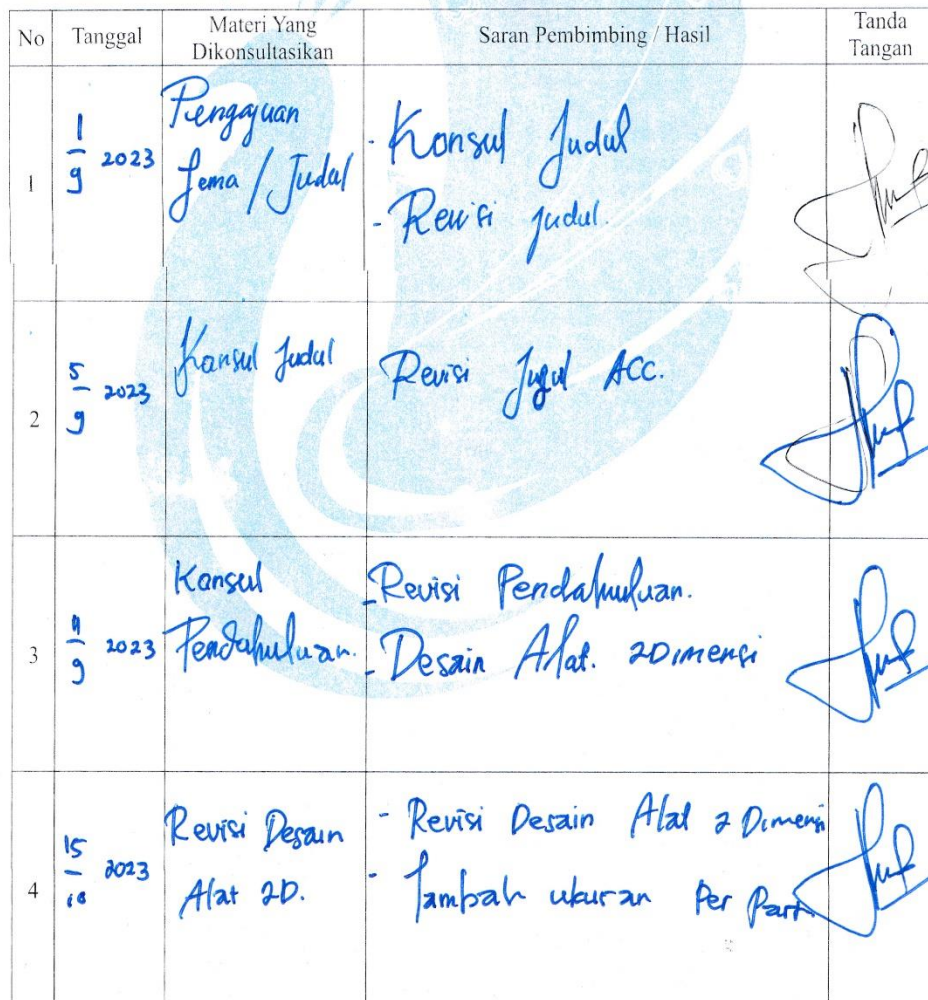 No Tanggal Materi Yang Dikonsultasikan Saran Pembimbing / Hasil Tanda Tangan
1
1/9 2023
Pengajuan
Tema / Judul
- Konsul Judul
- Revisi judul.
2
5/9 2023
Konsul Judul
Revisi Judul ACC.
3
11/9 2023
Konsul
Pendahuluan.
- Revisi Pendahuluan.
- Desain Alat. 2Dimensi
4
15/10 2023
Revisi Desain
Alat 2D.
- Revisi Desain Alat 2 Dimensi
- Tambah ukuran Per Part